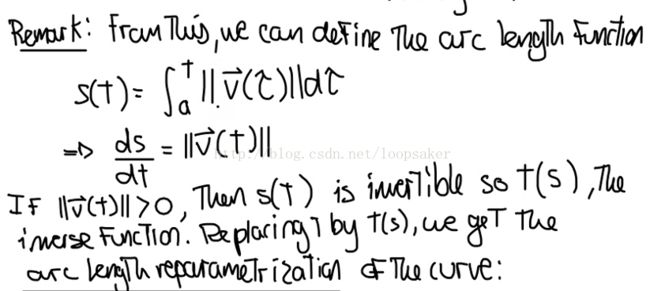 Remark: From This, we can define The arc length function
s(t) = ∫_a^t ||v⃗(τ)||dτ
=> ds/dt = ||v⃗(t)||
http://blog.csdn.net/loopsaker
If ||v⃗(t)|| > 0, Then s(t) is invertible so t(s), The
inverse function. Replacing t by t(s), we get the
arc length reparametrization of The curve: